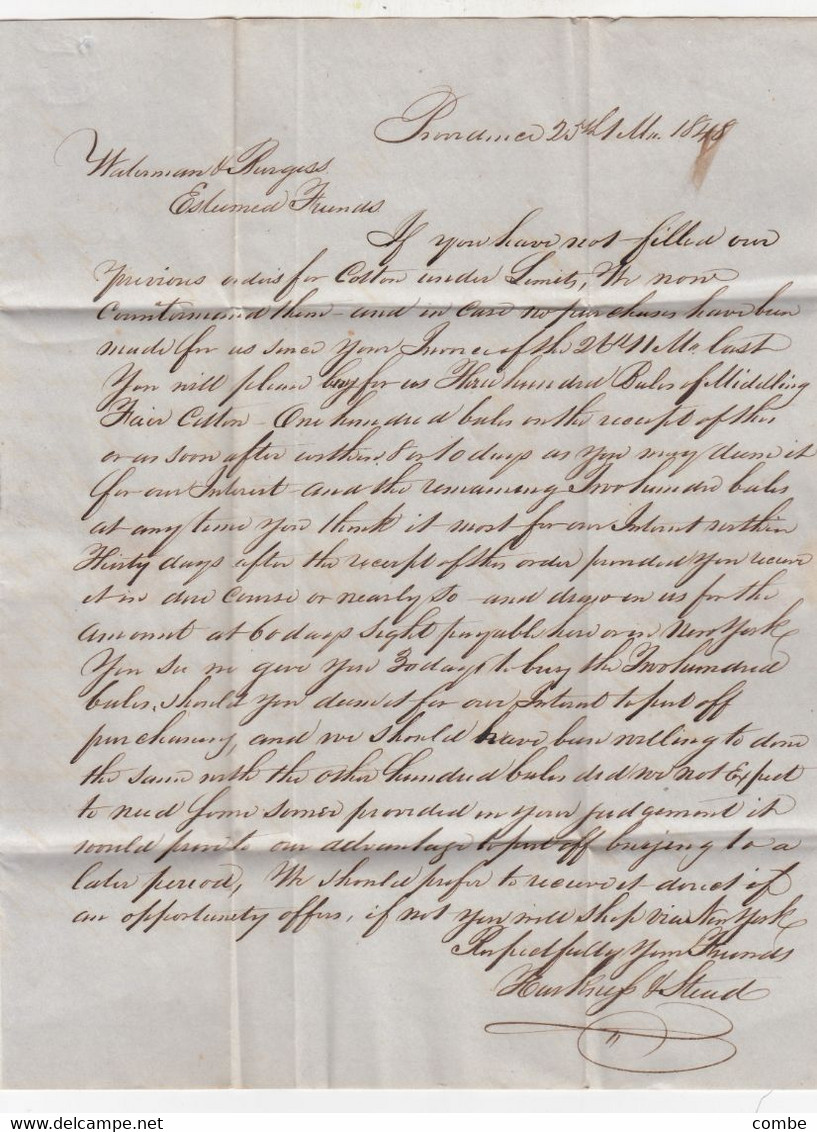 Providence 25th 1 Mo. 1848
Waterman & Burgess
Esteemed Friends
If you have not filled our
previous orders for Cotton under Limits, We now
Countermand them - and in case no purchases have been
made for us since your Invoice of the 26th 11 Mo. last
You will please buy for us Three hundred Bales of Middling
Fair Cotton - One hundred bales on the receipt of this
or as soon after within 8 or 10 days as you may deem it
for our Interest - and the remaining Two hundred bales
at any time you think it most for our Interest within
Thirty days after the receipt of this order provided you receive
it in due course or nearly so - and draw on us for the
amount at 60 days sight payable here or in New York
You see we give you 30 days to buy the Two hundred
bales, should you deem it for our Interest to put off
purchasing, and we should have been willing to done
the same with the other hundred bales did we not Expect
to need some sooner provided in your judgement it
would prove to our advantage to put off buying to a
later period, We should prefer to receive it direct if
an opportunity offers, if not you will ship via New York
Respectfully Your Friends
Harkness & Stead
combe
www.delcampe.net